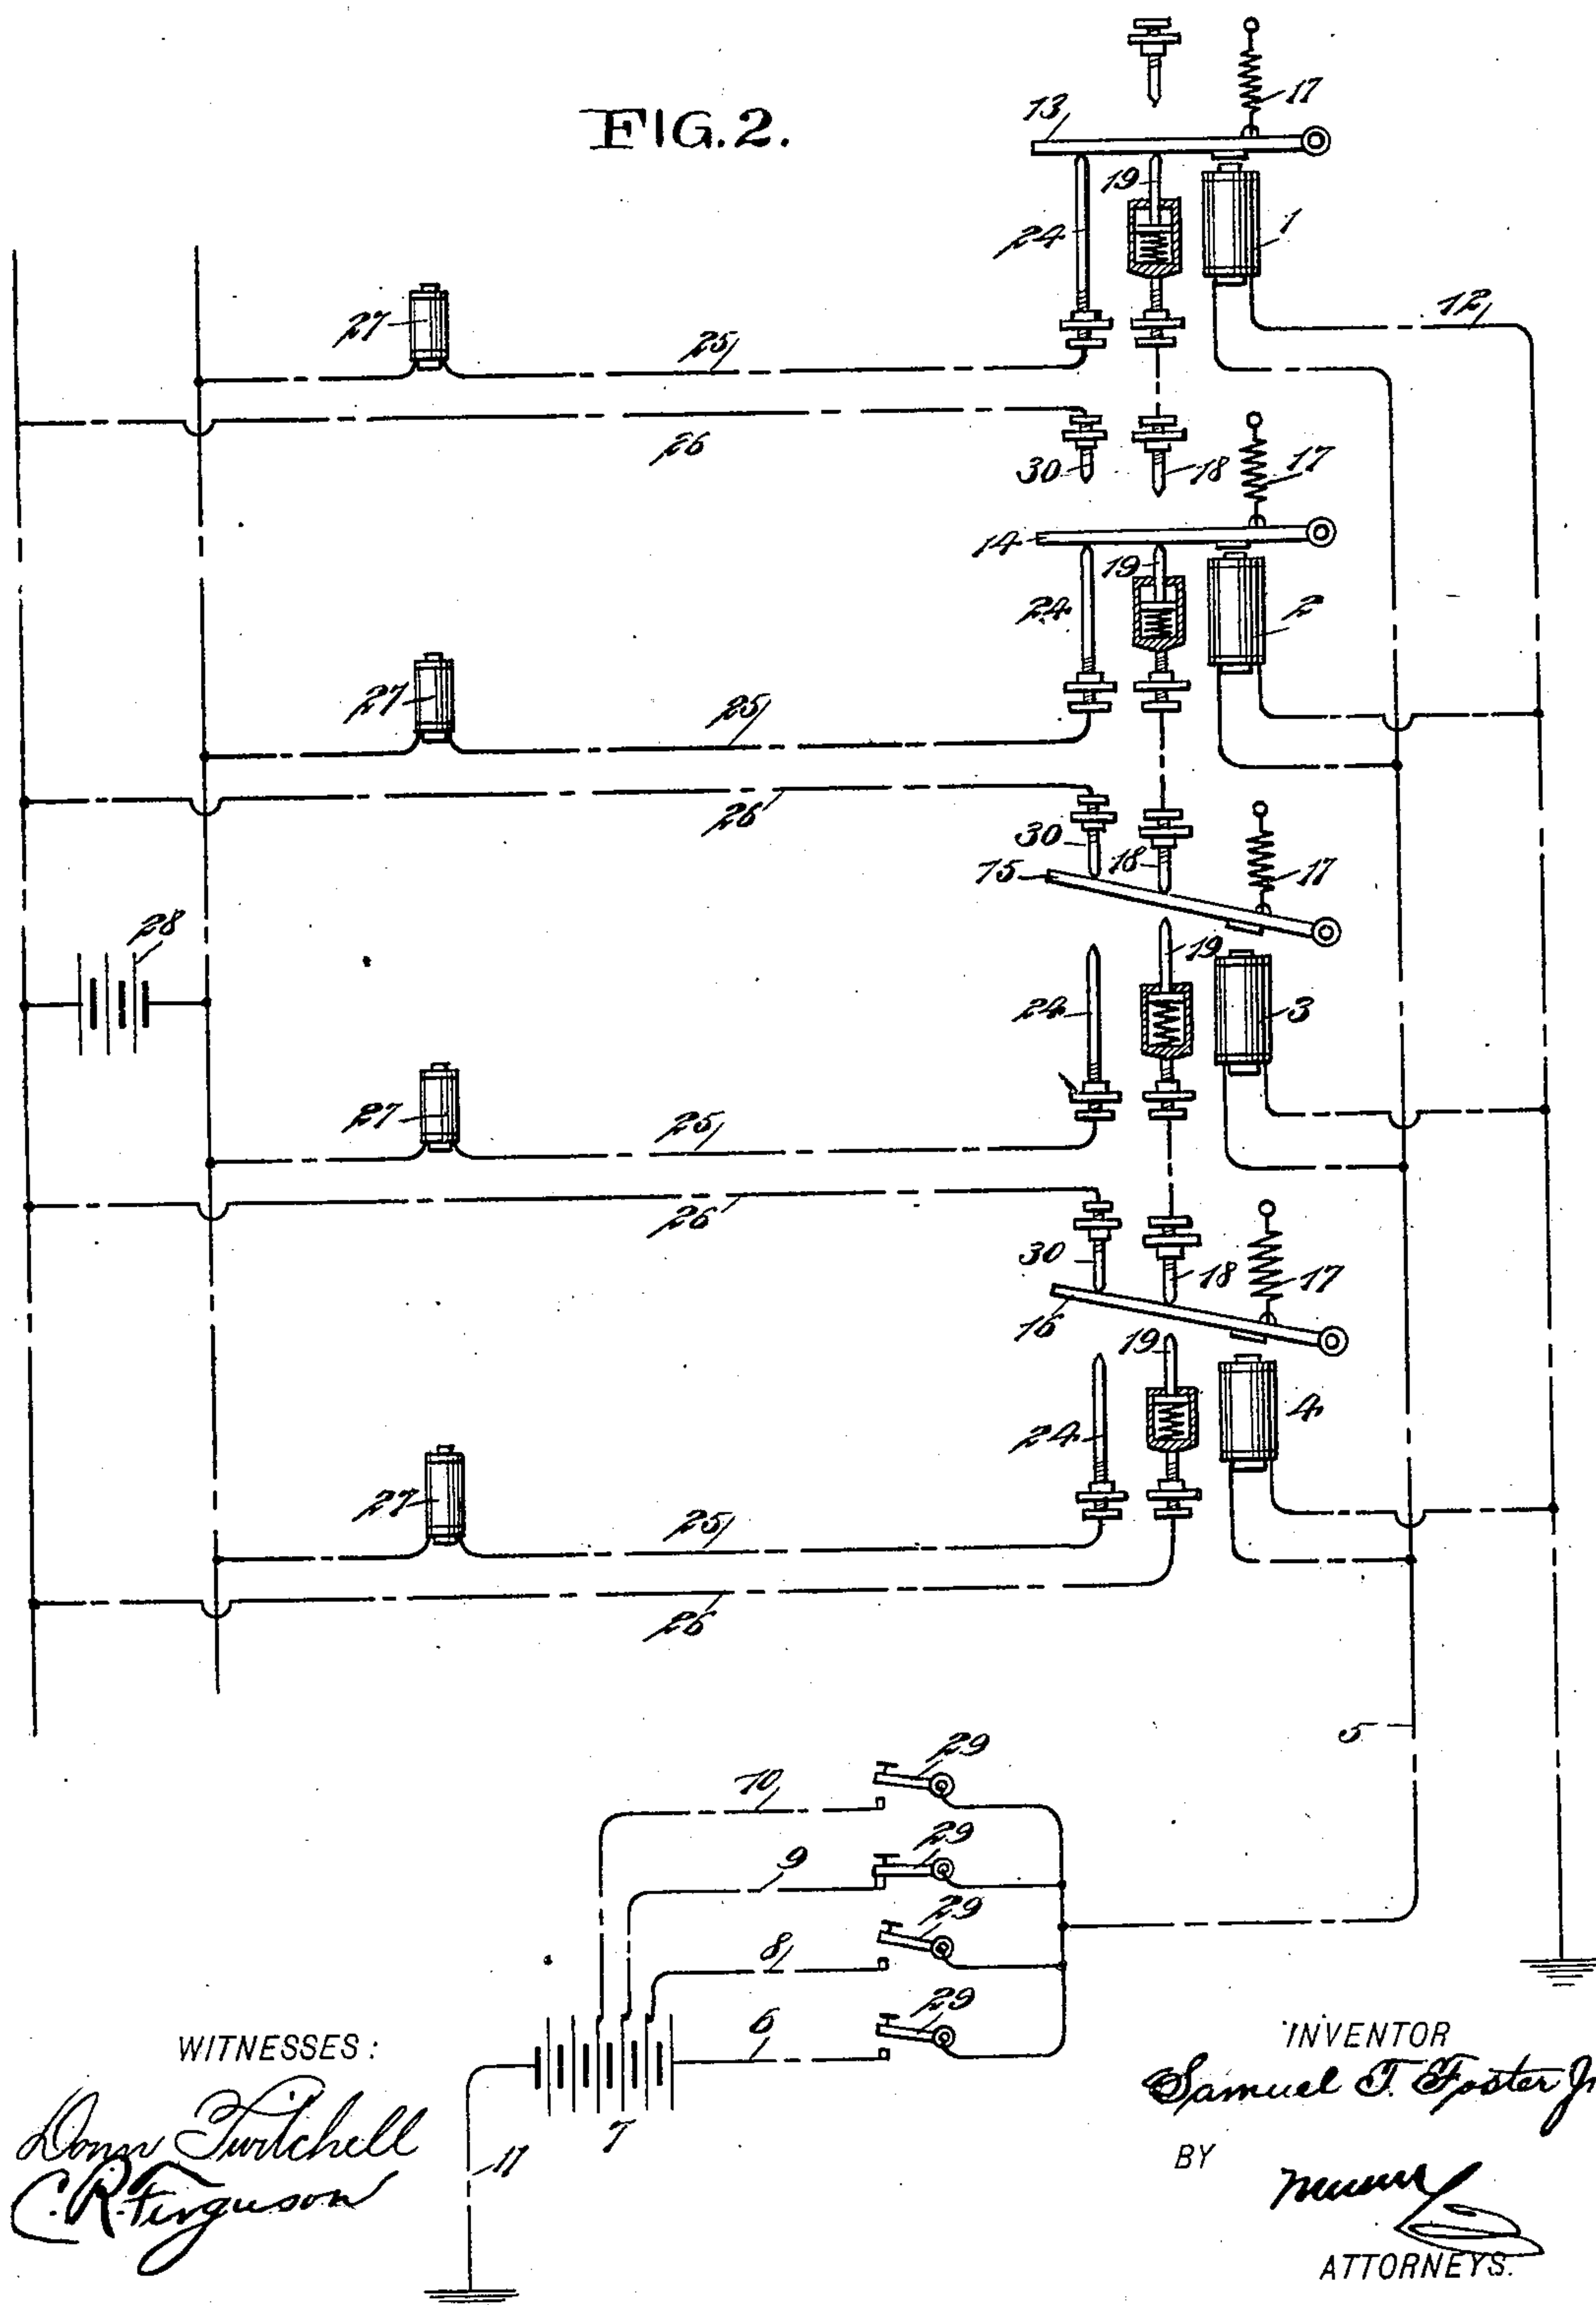 FIG. 2.
17
13
19
24
1
12
27
25
26
30
18
17
14
19
24
2
27
25
26
30
18
17
15
28
19
24
3
27
25
26
30
18
17
16
19
24
4
27
25
26
5
10
29
9
29
8
29
6
29
7
11
WITNESSES:
Donn Twitchell
C. R. Ferguson
INVENTOR
Samuel T. Foster Jr
BY
Munn
ATTORNEYS.